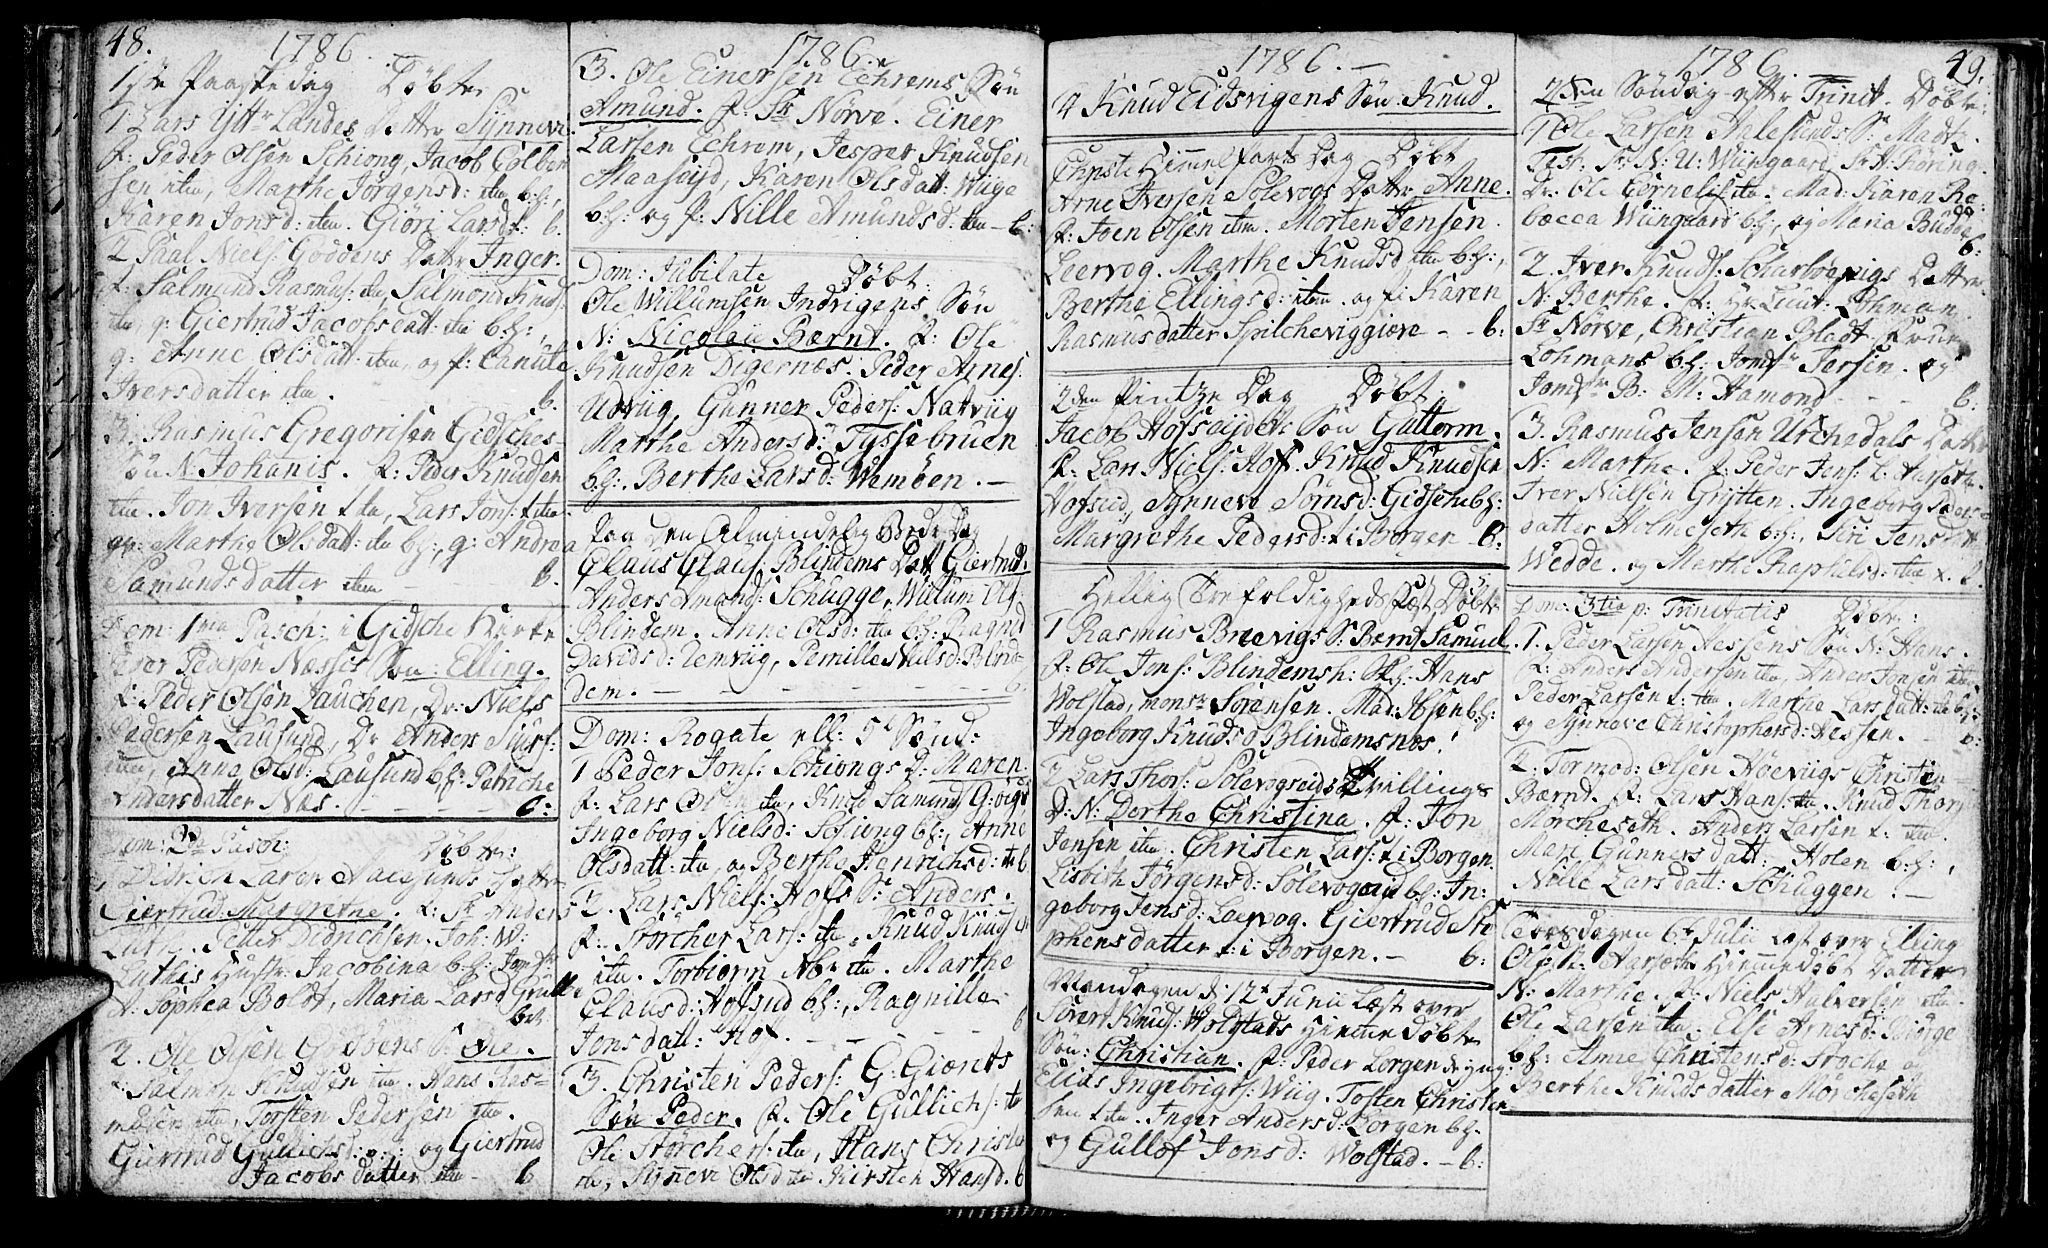 48.
1786
1ste Paaskedag Døbte
1 Lars Yttr Landes Datter Synneve.
f: Peder Olsen Schiong, Jacob Colben
sen itm, Marthe Jørgensd: itm b:h:,
Karen Jonsd: itm. Giøri Larsd f: b.
2 Paal Niels: Goddens Dattr Inger.
f: Salmund Rasmus: itm, Salmond Knuds:
itm, g: Giertrud Jacobsdatt: itm b:h:,
g: Anne Olsdatt: itm, og f: Canute
Iversdatter itm. b.
3. Rasmus Gregorisen Gidsches-
Søn N: Johanis. f: Peder Knudsen
itm. Jon Iversen f itm, Lars Jons: f itm
gp: Marthe Olsdatt: itm b:h:, g: Andrea
Samundsdatter itm - b.
Dom: 1ma Pasch: i Gidsche Kirke
Iver Pedersen Næsses Søn: Elling.
f: Peder Olsen Lauchen, Dr: Niels
Pedersen Lausund, Dr Anders Siurs:
itm, Anne Olsd: Lausund b:h: Perniche
Andersdatter Næs. b:
Dom: 2da Pasch: Døbte:
1 Didrich Laren Aalesunds Datter
Giertrud Margrethe. f: Sr Anders
Luth. Petter Didrichsen. Joh: W:
Luthis Hustr: Jacobina b:h: Jomfr
A: Sophea Boldt, Maria Larsd Grutle
bet
2. Ole Olsen Goddens S: Ole.
f: Salmon Knudsen itm. Hans Ras=
musen itm, Torsten Pedersen itm.
Giertrud Gullichsd: og Giertrud
Jacobsdatter itm - b
1786.
3. Ole Einersen Echrems Søn
Amund. f: Sr Nörve. Einer
Larsen Echrem, Jesper Knudsen
Maaseijd, Karen Olsdatt: Wiige
b:h: og f: Nille Amundsd: itm - b:
Dom: Jubilate Døbt:
Ole Willumsen Indvigens Søn
N: Nicolaÿ Bærnt. f: Ole
Knudsen Digernæs. Peder Arnes:
Udviig, Gunner Peders: Natviig
Marthe Andersd: Tyssebruen
b:h:. Berthe Larsd: Wemöen. -
Paa Den Almindelig Bede Dag
Claus Claus: Blindems Datt Giertrud.
Anders Amund: Schugge, Willum Ols:
Blindem. Anne Olsd: itm b:h: Ragnild
Davidsd: Remviig, Pernille Nielsd: Blin=
dem. - b.
Dom: Rogate ell: 5te Sønd:
1 Peder Jons: Schiongs D: Maren.
f: Lars Olsen itm, Knud Samunds G:oigs
Ingeborg Nielsd: Schiong b:h:, Anne
Olsdatt: itm, og Berthe Henrichsd: itm b
2. Lars Niels: Hofs S: Anders.
f: Storcher Lars: itm, Knud Knuds
itm. Torbiørn Ab: itm. Marthe
Clausd: Hofsud b:h:, Ragnille
Jonsdatt: Hof. b
3. Christen Peders: G: Giærts
Søn Peder. f. Ole Gullichs: itm
Ole Storchers: itm, Hans Christe
itm, Synneve Olsd itm Kirsten Hansd. b
1786. -
4 Knud Eidsvigens Søn Knud.
Christi Himmelfarts Dag Døbt
Arne Iversen Solevogs Dattr Anne.
f: Joen Olsen itm. Morten Jensen
Leervog. Marthe Knudsd itm b:h:,
Berthe Ellingsd: itm. og f: Karen
Rasmusdatter Spilcheviggiøre - - b:
2den Pintze Dag Døbt
Jacob Hofsøijdets Søn Gutterm.
f: Lars Niels: Hoff. Knud Knudsen
Hofsud, Synneve Sörnsd: Gidsche b:h:
Margrethe Pedersd: f: i Borgen - b:
Hellig Trefoldigheds Fæst Døbt
1 Rasmus Brevigs S: Bernt Samuel.
f: Ole Jons: Blindemsh: Hans
Wolstad, monsr Sörensen. Mad: Ibsen b:h:
Ingeborg Knudsd Blindemsnæs.
2 Lars Thors: Solevogseids Tvillings
D: N: Dorthe Christina. f: Jon
Jensen itm. Christen Lars: f: i Borgen
Lisbith Jörgensd: Solevogeid b:h: In:
geborg Jensd: Leervog. Giertrud Ste
phensdatter f: i Borgen. - b:
Mandagen d: 12te Junii Læst over
Sivert Knuds: Wolstads Hiemmedøbte
Søn: Christian. f: Peder Lorgen
Elias Ingebrigts: Wiig. Tosten Christen
sen f itm. Inger Andersd: Lorgen b:h:
og Gullof Jonsd: Wolstad. - b:
1786
49.
2den Søndag efter Trinit. Døbte:
1 Ole Larsen Aalesunds Sn Madtz
Test: Sr N: U: Wiingaard, Sr H: Röring.
Dr: Ole Cornelis itm. Mad: Karen Re:
becca Wiingaard b:h:, og Maria Budde
b:
2. Iver Knuds: Scharbøevigs Datter
N: Berthe. f: Hr Lieut: Lohman.
Sr Nörve, Christian Bladt. Frue
Lohmans b:h: Jomfr Jersin. og
Jomfr B: M: Hamond - - - b:
3. Rasmus Jensen Urchedals Datter
N: Marthe. f: Peder Jens: L: Aarseth.
Iver Nielsen Grytten. Ingeborg Peders=
datter Holmeseth b:h:, Siri Jensdatt
Wedde. og Marthe Raphaelsd: itm f. b.
Dom: 3tia p: Trinitatis Døbt:
1. Peder Larsen Hessens Søn N: Hans.
f: Anders Andersen itm, Ander Jonsen itm
Peder Larsen f: itm. Marthe Larsdatt: itm b:h:
og Synneve Christophersd: Hessen. - b:
2. Tormod: Olsen Høeviigs Christen
Bærnt. f: Lars Hans: itm. Knud Thors
Morcheseth. Anders Larsen f: itm.
Mari Gunnersdatt: Holen b:h:,
Nille Larsdatt: Schuggen. -
Torsdagen 6te Julii Læst over Elling
Ols: L: Aarseth Hiemmedøbt Datter
N: Marthe. f: Niels Halversen itm.
Ole Larsen itm. Else Arnesd:
b:h: Anne Christensd: Stoche og
Berthe Knudsdatter Mörcheseth